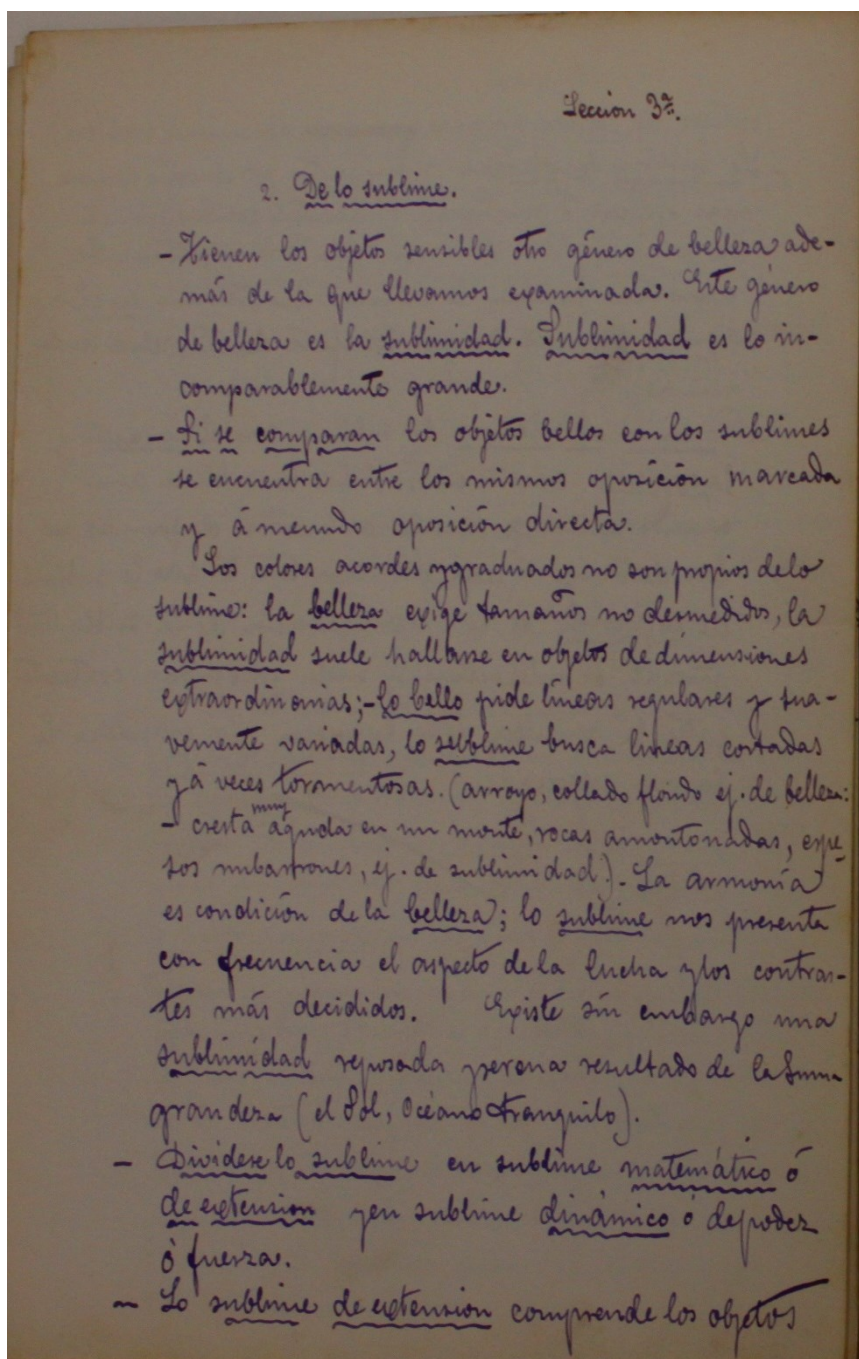 Lección 3ª.
2. De lo sublime.
- Tienen los objetos sensibles otro género de belleza ade-
más de la que llevamos examinada. Este género
de belleza es la sublimidad. Sublimidad es lo in-
comparablemente grande.
- Si se comparan los objetos bellos con los sublimes
se encuentra entre los mismos oposición marcada
y á menudo oposición directa.
Los colores acordes y graduados no son propios de lo
sublime: la belleza exige tamaños no desmedidos, la
sublimidad suele hallarse en objetos de dimensiones
extraordinarias; - lo bello pide líneas regulares y sua-
vemente variadas, lo sublime busca lineas cortadas
y á veces tormentosas. (arroyo, collado florido ej. de belleza:
- cresta muy aguda en un monte, rocas amontonadas, espe-
sos nubarrones, ej. de sublimidad). - La armonía
es condición de la belleza; lo sublime nos presenta
con frecuencia el aspecto de la lucha y los contras-
tes más decididos. Existe sin embargo una
sublimidad reposada y serena resultado de la Suma
grandeza (el Sol, Océano tranquilo).
- Divídese lo sublime en sublime matemático ó
de extension y en sublime dinámico ó de poder
ó fuerza.
- Lo sublime de extension comprende los objetos